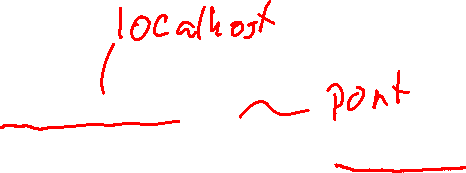 localhost
~ port